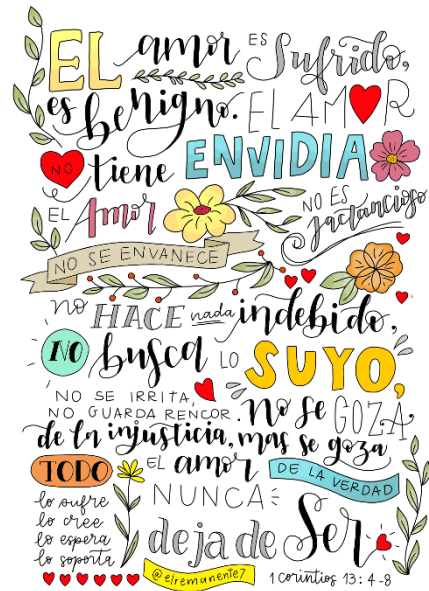 EL amor ES Sufrido,
es benigno. EL AMOR
NO tiene ENVIDIA
EL Amor NO ES jactancioso
NO SE ENVANECE
no HACE nada indebido,
NO busca LO SUYO,
NO SE IRRITA,
NO GUARDA RENCOR. No se GOZA
de la injusticia, mas se goza
DE LA VERDAD
TODO
lo sufre
lo cree
lo espera
lo soporta
EL amor
NUNCA
deja de Ser
@elremanente7
1 Corintios 13:4-8